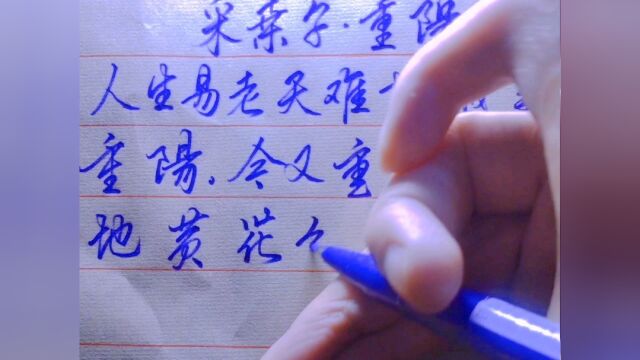 采桑子·重陽
人生易老天难
重陽.今又重
地黄花